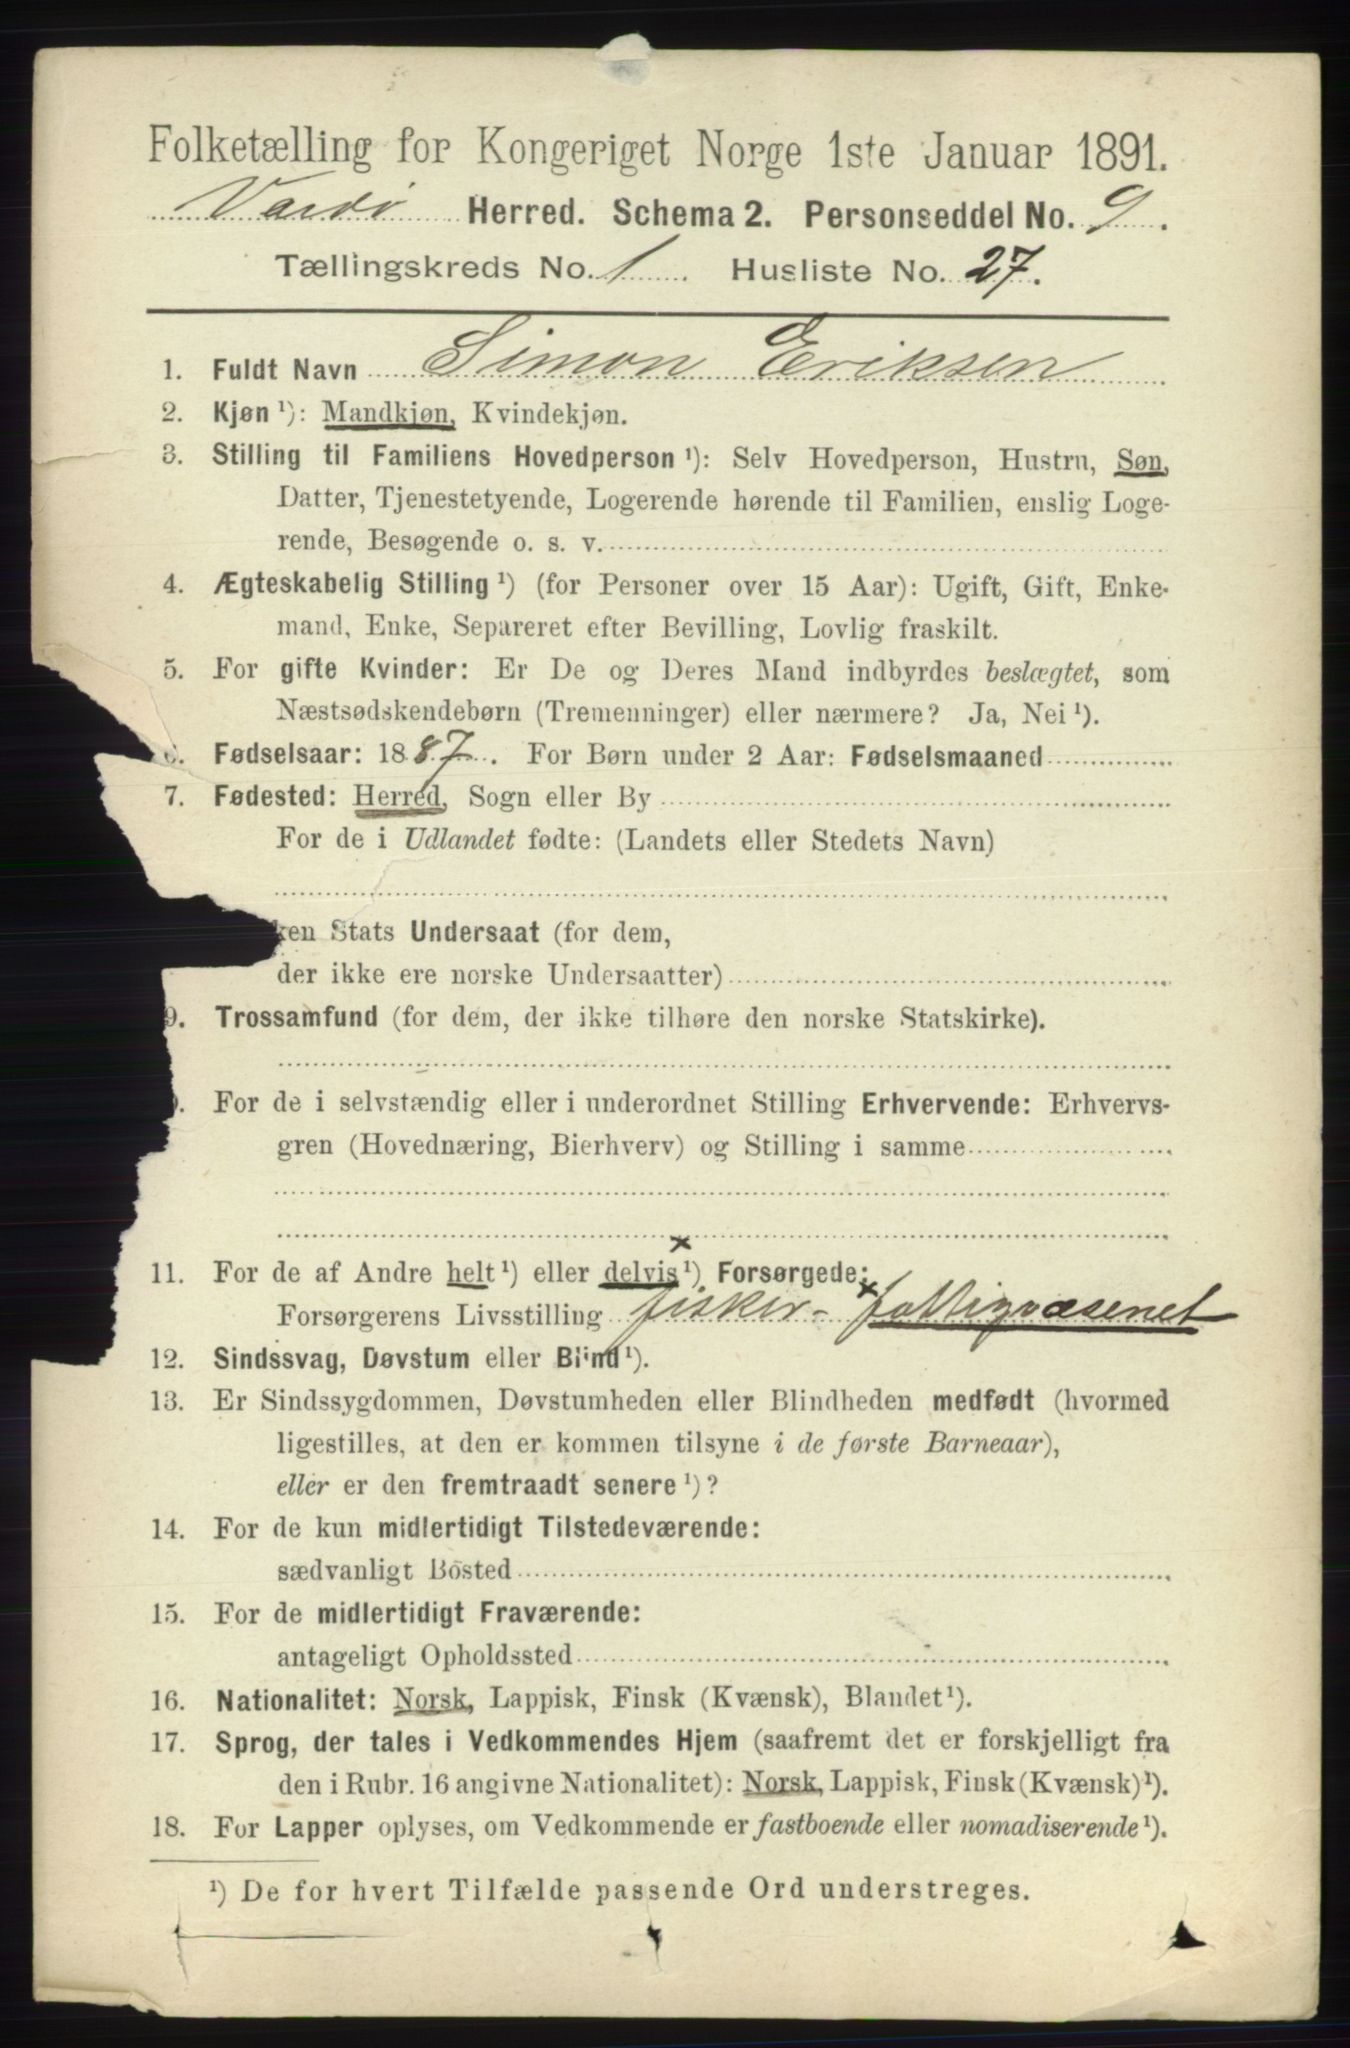 Folketælling for Kongeriget Norge 1ste Januar 1891.
Vardø Herred. Schema 2. Personseddel No. 9.
Tællingskreds No. 1. Husliste No. 27.
1. Fuldt Navn Simon Eriksen
2. Kjøn ¹): Mandkjøn, Kvindekjøn.
3. Stilling til Familiens Hovedperson ¹): Selv Hovedperson, Hustru, Søn,
Datter, Tjenestetyende, Logerende hørende til Familien, enslig Loge-
rende, Besøgende o. s. v.
4. Ægteskabelig Stilling ¹) (for Personer over 15 Aar): Ugift, Gift, Enke-
mand, Enke, Separeret efter Bevilling, Lovlig fraskilt.
5. For gifte Kvinder: Er De og Deres Mand indbyrdes beslægtet, som
Næstsødskendebørn (Tremenninger) eller nærmere? Ja, Nei ¹).
6. Fødselsaar: 1887. For Børn under 2 Aar: Fødselsmaaned
7. Fødested: Herred, Sogn eller By
For de i Udlandet fødte: (Landets eller Stedets Navn)
ken Stats Undersaat (for dem,
der ikke ere norske Undersaatter)
9. Trossamfund (for dem, der ikke tilhøre den norske Statskirke).
. For de i selvstændig eller i underordnet Stilling Erhvervende: Erhvervs-
gren (Hovednæring, Bierhverv) og Stilling i samme
x
11. For de af Andre helt ¹) eller delvis ¹) Forsørgede:
Forsørgerens Livsstilling fisker - x fattigvæsenet
12. Sindssvag, Døvstum eller Blind ¹).
13. Er Sindssygdommen, Døvstumheden eller Blindheden medfødt (hvormed
ligestilles, at den er kommen tilsyne i de første Barneaar),
eller er den fremtraadt senere ¹)?
14. For de kun midlertidigt Tilstedeværende:
sædvanligt Bosted
15. For de midlertidigt Fraværende:
antageligt Opholdssted
16. Nationalitet: Norsk, Lappisk, Finsk (Kvænsk), Blandet ¹).
17. Sprog, der tales i Vedkommendes Hjem (saafremt det er forskjelligt fra
den i Rubr. 16 angivne Nationalitet): Norsk, Lappisk, Finsk (Kvænsk) ¹).
18. For Lapper oplyses, om Vedkommende er fastboende eller nomadiserende ¹).
¹) De for hvert Tilfælde passende Ord understreges.